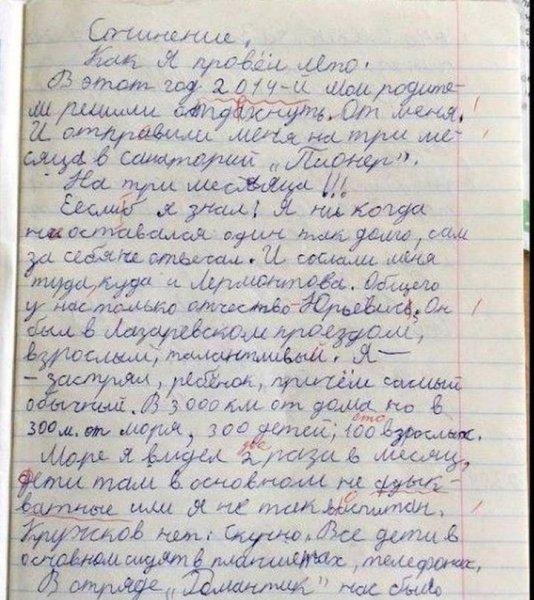 Сочинение.
Как я провёл лето.
В этот год 2014-й мои родите-
ли решили отдахнуть. От меня.
И отправили меня на три ме-
сяца в санаторий „Пионер".
На три месяца!!!
Еесли б я знал! Я ни когда
не оставался один так долго, сам
за себя не отвечал. И сослали меня
туда, куда и Лермонтова. Общего
у нас только отчество - Юрьевич. Он
был в Лазаревском проездом,
взрослый, талантливый. Я —
- застрял, ребёнок, причём самый
обычный. В 3 000 км от дома но в
300 м. от моря, 300 детей, сто 100 взрослых.
Море я видел два 2 раза в месяц,
дети там в основном не адык-
ватные или я не так воспитан.
Кружков нет. Скучно. Все дети в
основном сидят в планшетах, телефонах.
В отряде „Романтик" нас было